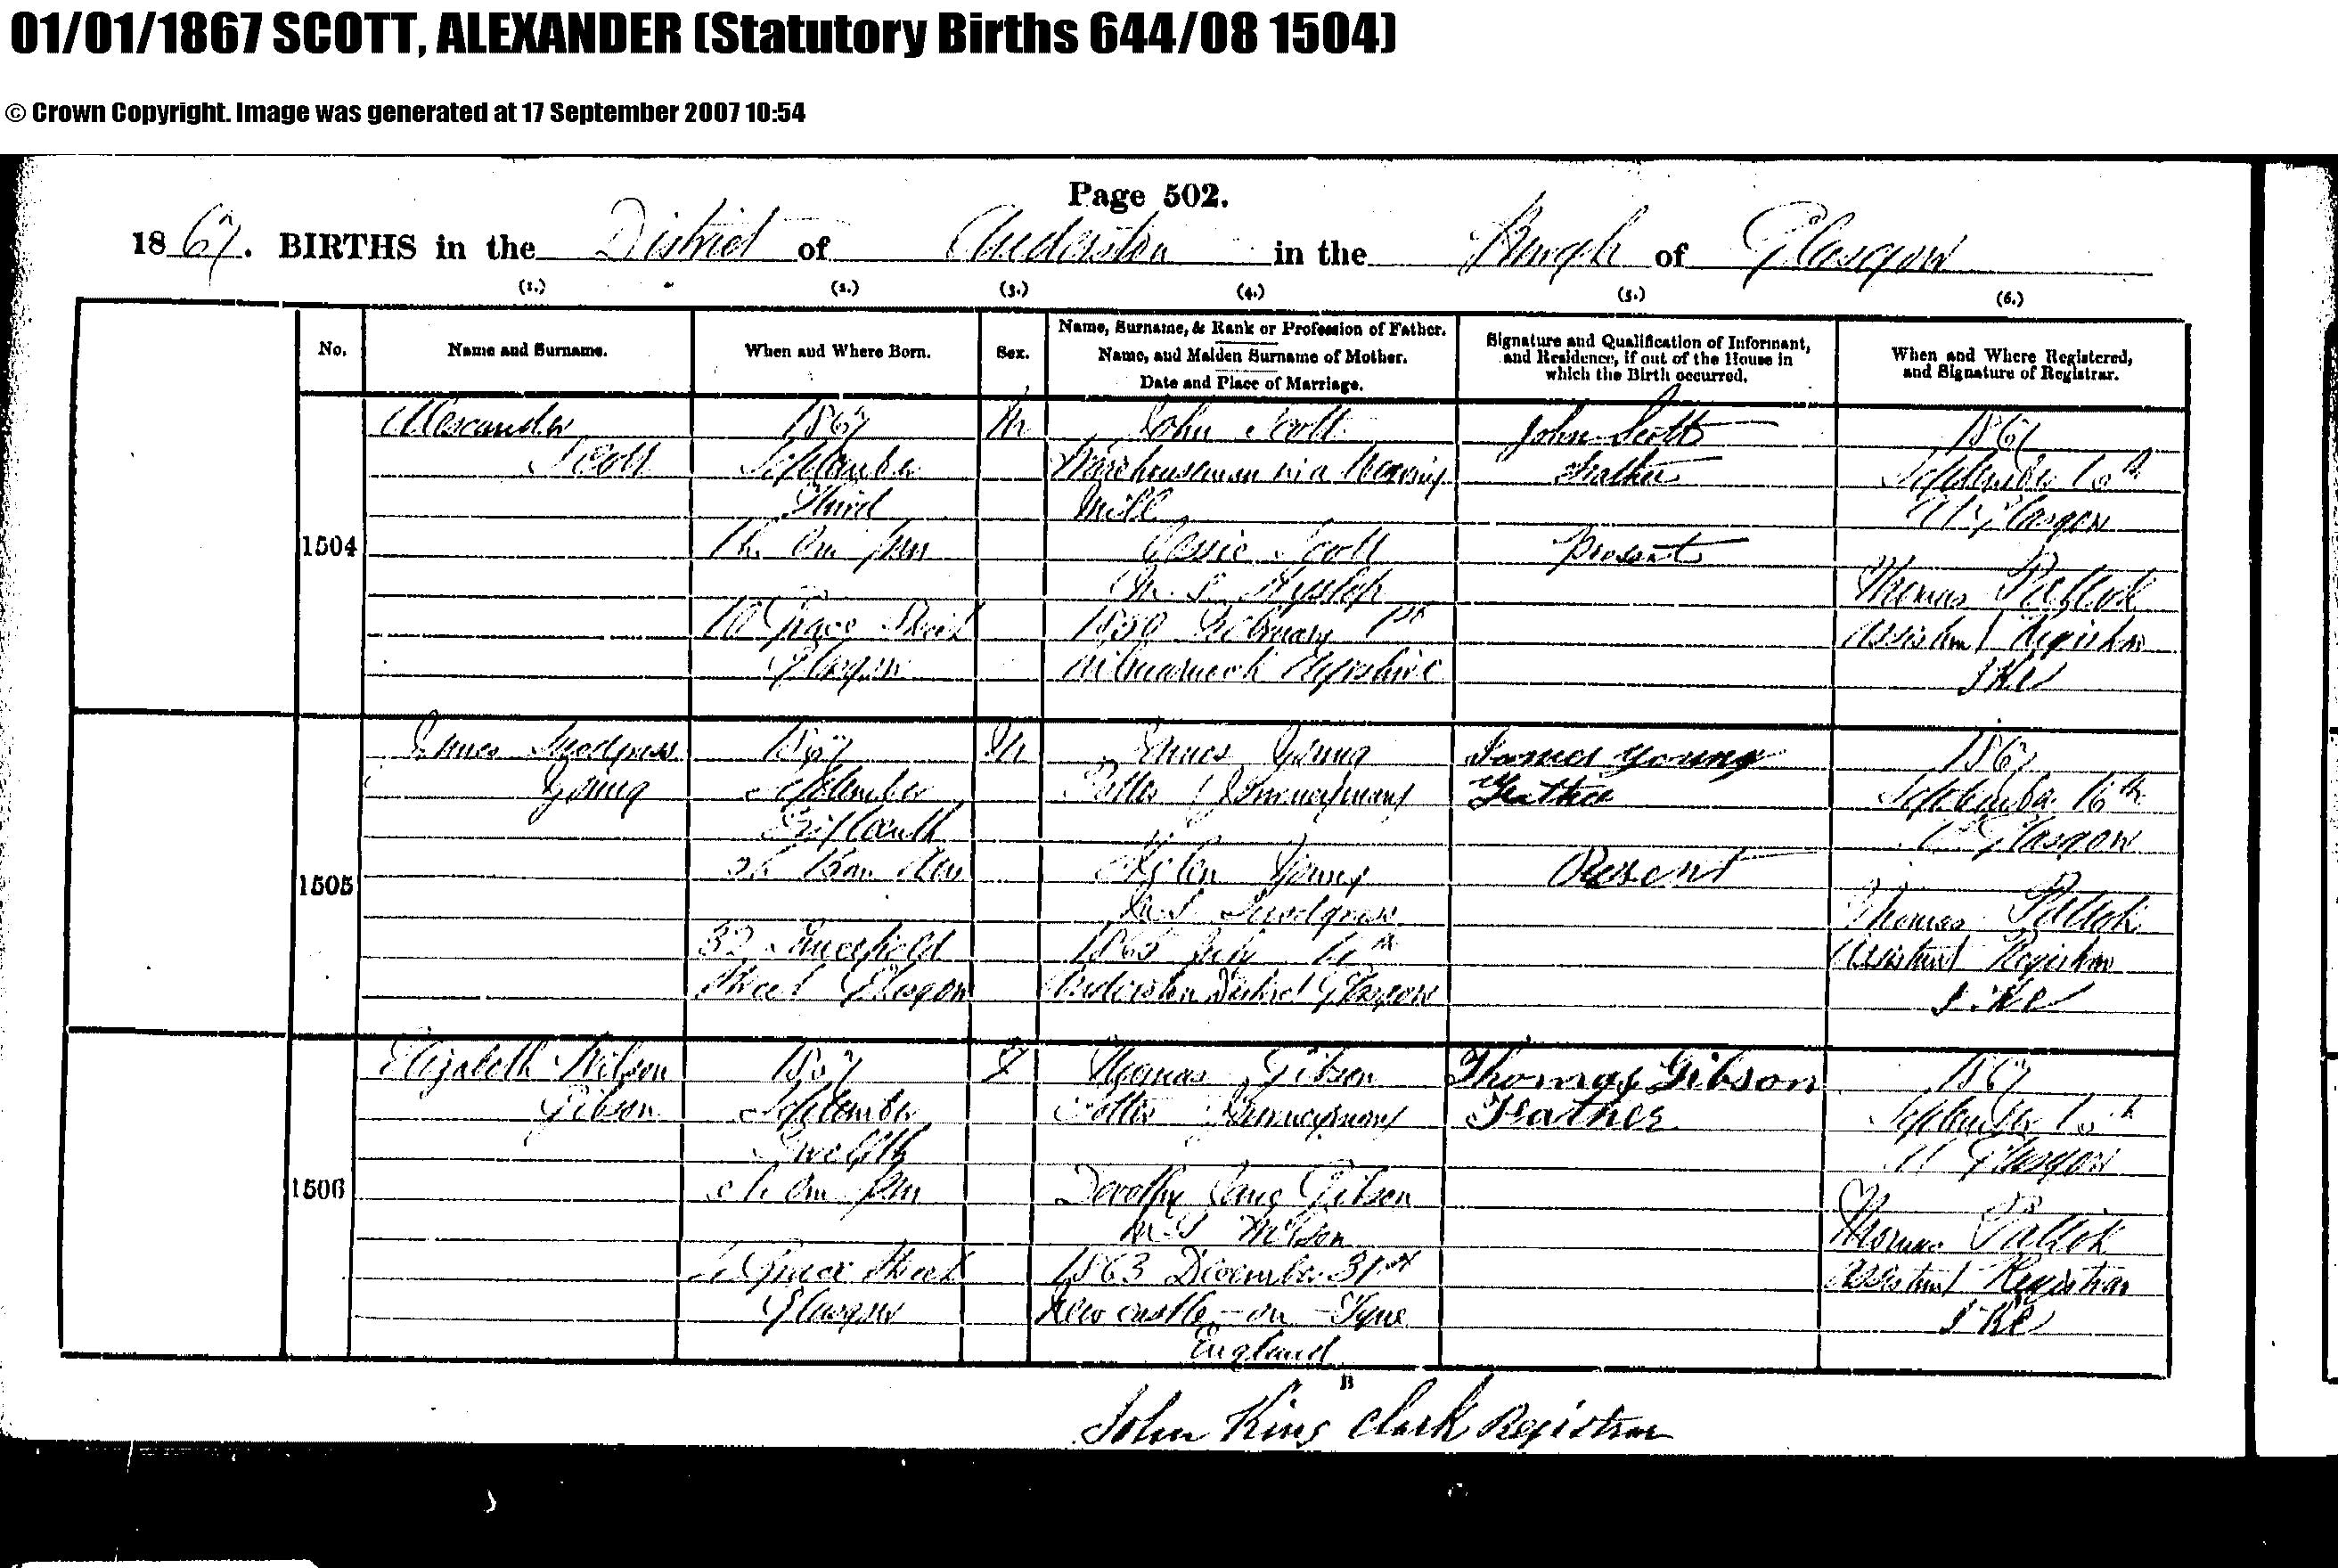 01/01/1867 SCOTT, ALEXANDER (Statutory Births 644/08 1504)
© Crown Copyright. Image was generated at 17 September 2007 10:54
Page 502.
1867. BIRTHS in the District of Anderston in the Burgh of Glasgow
(1.) (2.) (3.) (4.) (5.) (6.)
No. Name and Surname. When and Where Born. Sex. Name, Surname, & Rank or Profession of Father. Name, and Maiden Surname of Mother. Date and Place of Marriage. Signature and Qualification of Informant, and Residence, if out of the House in which the Birth occurred. When and Where Registered, and Signature of Registrar.
1504
Alexander
Scott
1867
September
Third
Grace Street
Glasgow
M
John Scott
Warehouseman in a Weaving
Mill
Scott
M.S. Hyslop
February 1st
Kilmarnock Ayrshire
John Scott
Father
Present
1867
September
At Glasgow
Thomas
Assistant Registrar
J.K.C.
1505
James Snodgrass
Young
1867
September
32
Street Glasgow
M
James Young
Potter (Journeyman)
Helen Young
M.S. Snodgrass
Anderston District Glasgow
James Young
Father
Present
1867
September 16th
Glasgow
Thomas
Assistant Registrar
J.K.C.
1506
Elizabeth Wilson
Gibson
1867
September
Twelfth
Grace Street
Glasgow
F
Thomas Gibson
Potter Journeyman
Dorothy Jane Gibson
M.S. Wilson
1863 December 31st
Newcastle-on-Tyne
England
Thomas Gibson
Father
1867
September
At Glasgow
Thomas
Assistant Registrar
J.K.C.
B
John King Clark Registrar